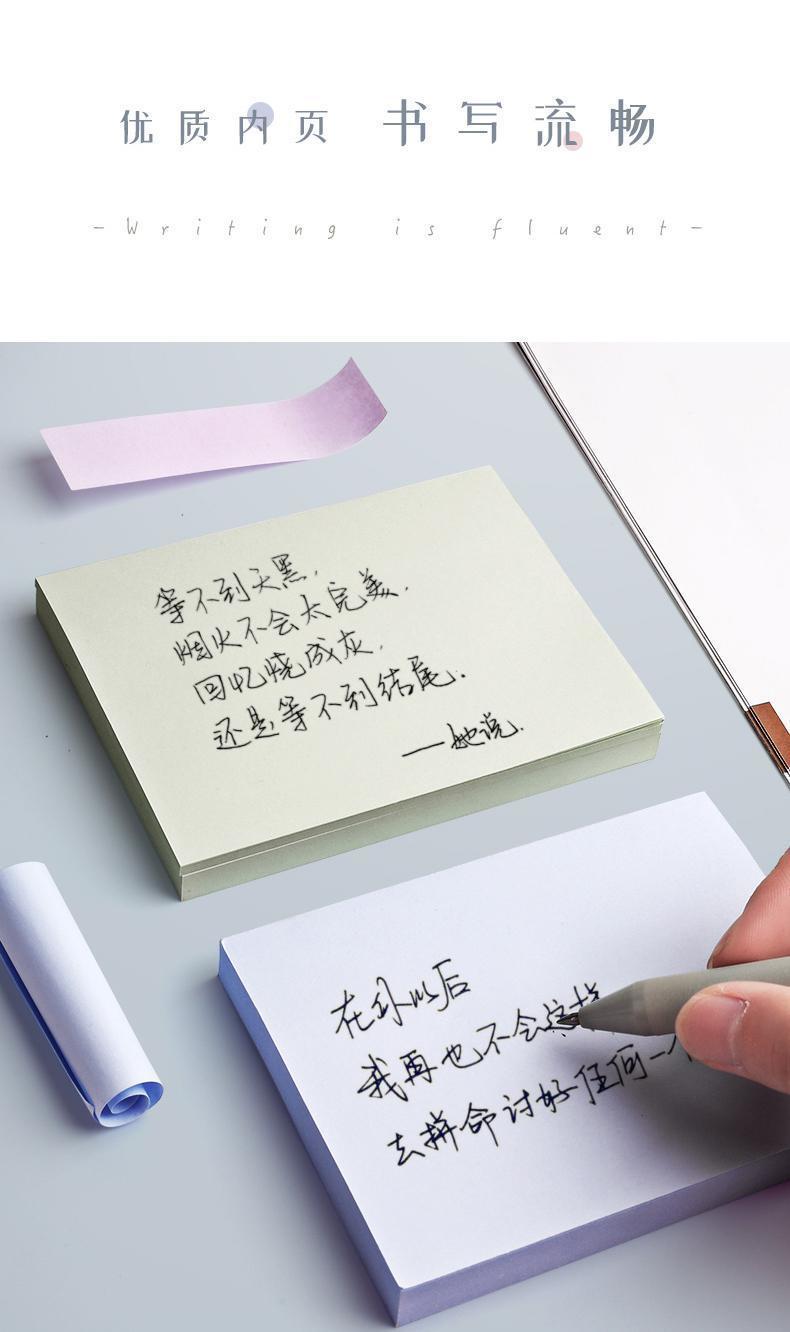 优质内页 书写流畅
-Writing is fluent-
等不到天黑,
烟火不会太完美,
回忆烧成灰,
还是等不到结尾.
——她说.
在你以后
我再也不会这
去拼命讨好任何一